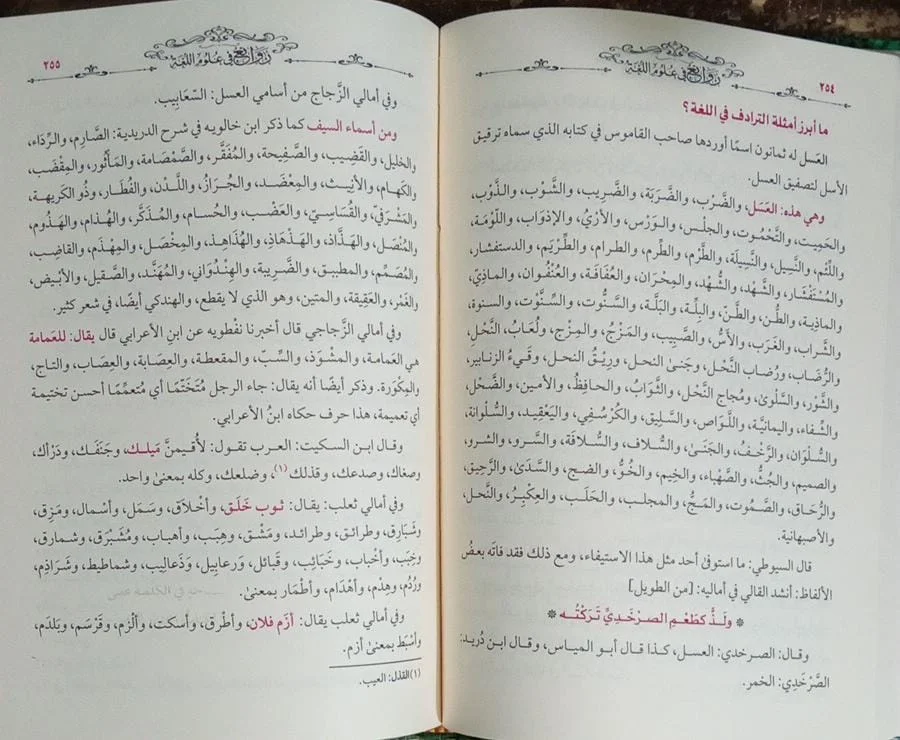 ٢٥٤
روائع في علوم اللغة
ما أبرز أمثلة الترادف في اللغة؟
العَسل له ثمانون اسمًا أوردها صاحب القاموس في كتابه الذي سماه ترقيق
الأسل لتصفيق العسل.
وهي هذه: العَسَل، والضَّرْب، والضَّرَبَة، والضَّرِيب، والشَّوْب، والذَّوْب،
والحَمِيت، والتَّحْمُوت، والجلْس، والوَرْس، والأرْيُ، والإذوَاب، واللَّوْمَة،
واللَّثْم، والنَّسِيل، والنَّسِيلَة، والطَّرْم، والطِّرم، والطرام، والطِّرْيَم، والدستفشار،
والمُسْتَفْشار، والشَّهْد، والشُّهْد، والمِحْران، والعُفَافَة، والعُنْفُوان، والماذِيّ،
والماذِية، والطُّن، والطَّنّ، والبِلَّة، والبَلَّة، والسَّنُّوت، والسِنَّوْت، والسنوة،
والشَّراب، والغَرَب، والأَسُّ، والصَّبِيب، والمَزْجُ، والمِزْج، ولُعَابُ، النَّحْل،
والرُّضَاب، ورُضاب النَّحْل، وجَنىٰ النحل، ورِيْقُ النحل، وقَيءُ الزنابير،
والشَّوْر، والسَّلْوىٰ، ومُجاج النَّحْل، والثَّوَابُ، والحافِظُ، والأمين، والضَّحْل،
والشِّفاء، واليمانيَّة، واللَّوَاص، والسَّلِيق، والكُرْسُفِي، واليَعْقِيد، والسُّلْوانة،
والسُّلْوَان، والرَّخْفُ، والجَنىٰ، والسُّلاف، والسُّلافَة، والسَّرو، والشرو،
والصميم، والجُثُّ، والصَّهْباء، والخِيم، والخُوُّ، والضج، والسَّدىٰ، والرَّحِيق،
والرُّحَاق، والصَّمُوت، والمَجُّ، والمجلب، والحَلَب، والعِكْبِرُ، والنَّحل،
والأصبهانية.
قال السيوطي: ما استوفىٰ أحد مثل هذا الاستيفاء، ومع ذلك فقد فاتَه بعضُ
الألفاظ: أنشد القالي في أماليه: [من الطويل]
* ولَذُّ كطَعْمِ الصرْخَدِيِّ تَرَكْتُه *
وقال: الصرخدي: العسل، كذا قال أبو المياس، وقال ابن دُريد:
الصَّرْخَدِي: الخمر.
٢٥٥
روائع في علوم اللغة
وفي أمالي الزَّجاج من أسامي العسل: السّعَابِيب.
ومن أسماء السيف كما ذكر ابن خالويه في شرح الدريدية: الصَّارِم، والرِّدَاء،
والخليل، والقَضِيب، والصَّفِيحة، والمُفَقَّر، والصَّمْصَامة، والمَأثُور، والمِقْضَب،
والكَهَام، والأنِيث، والمِعْضَد، والجُرَازُ، واللَّدْن، والفُطَار، وذُو الكَرِيهة،
والمَشرَفِيّ، والقُسَاسِيّ، والعَضْب، والحُسام، والمُذَكَّر، والهُذام، والهَذُوم،
والمُنْصَل، والهَذَّاذ، والهَذْهَاذِ، والهُذَاهِذ، والمِخْصَل، والمِهْذَم، والقاضِب،
والمُصَمِّم، والمطبق، والضَّرِيبة، والهِنْدُوَاني، والمُهَنَّد، والصَّقيل، والأبْيض،
والغَمْر، والعَقِيقة، والمتين، وهو الذي لا يقطع، والهندكي أيضًا، في شعر كثير.
وفي أمالي الزَّجاجي قال أخبرنا نفطويه عن ابن الأعرابي قال يقال: للعَمامة
هي العَمامة، والمشْوَذ، والسِّبّ، والمقعطة، والعِصَابة، والعِصَاب، والتاج،
والمِكْوَرَة. وذكر أيضًا أنه يقال: جاء الرجل مُتَخَتِّمًا أي مُتعممًا أحسن تختيمة
أي تعميمة، هذا حرف حكاه ابنُ الأعرابي.
وقال ابن السكيت: العرب تقول: لأُقِيمنَّ مَيلك، وجَنَفَك، ودَرْأك،
وصغاك، وصدعك، وقذلك (١)، وضلعك، وكله بمعنىٰ واحد.
وفي أمالي ثعلب: يقال: ثوب خَلَق، وأخْلاَق، وسَمَل، وأسْمال، ومَزِق،
وشَبَارِق، وطرائق، وطرائد، ومَشْق، وهِبَب، وأهباب، ومُشَبْرَق، وشمارق،
وخِبَب، وأخْباب، وخَبَائِب، وقَبائل، ورَعابِيل، وذَعالِيب، وشماطيط، وشَرَاذِم،
ورُدُم، وهِدْم، وأهْدَام، وأطْمَار بمعنىٰ.
وفي أمالي ثعلب يقال: أزَم فلان، وأطْرق، وأسكت، وألْزم، وقَرْسَم، وبَلدَم،
وأسْبَط بمعنىٰ أزم.
(١) القذل: العيب.